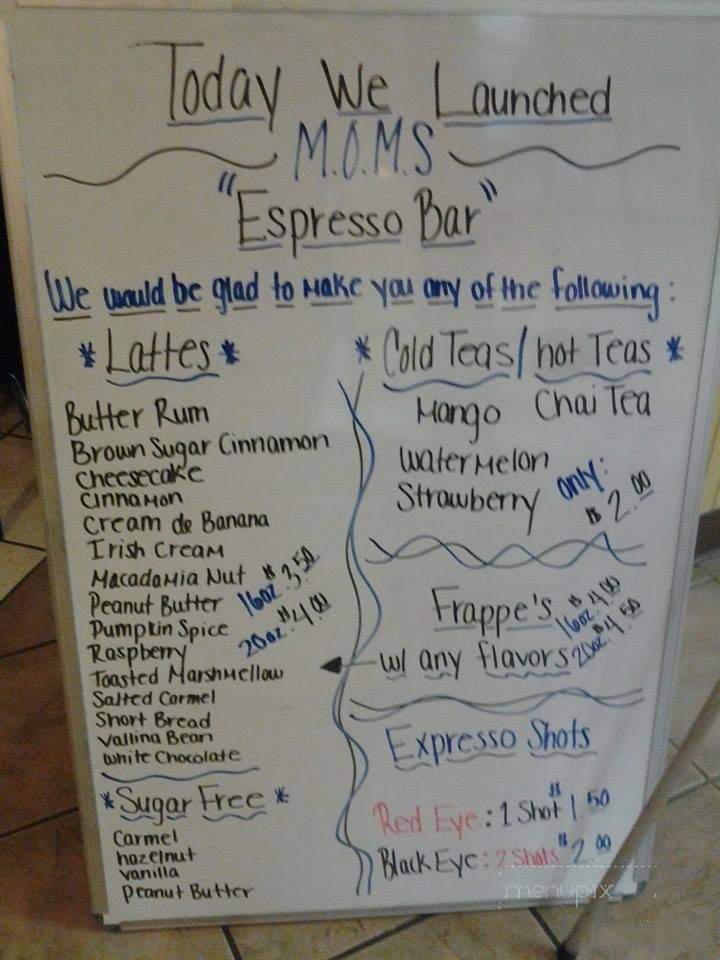 Today We Launched
M.O.M.S
"Espresso Bar"
We would be glad to make you any of the following:
*Lattes*
Butter Rum
Brown Sugar Cinnamon
Cheesecake
Cinnamon
Cream de Banana
Irish Cream
Macadamia Nut
Peanut Butter
Pumpkin Spice
Raspberry
Toasted Marshmellow
Salted Carmel
Short Bread
Vallina Bean
White Chocolate
16oz. $3.50
20oz. $4.00
*Sugar Free*
Carmel
hazelnut
vanilla
Peanut Butter
*Cold Teas/hot Teas*
Mango Chai Tea
Watermelon
Strawberry
only:
$2.00
Frappe's
w/ any flavors
16oz. $4.00
20oz. $4.50
Expresso Shots
Red Eye: 1 Shot $1.50
Black Eye: 2 Shots $2.00
menupix